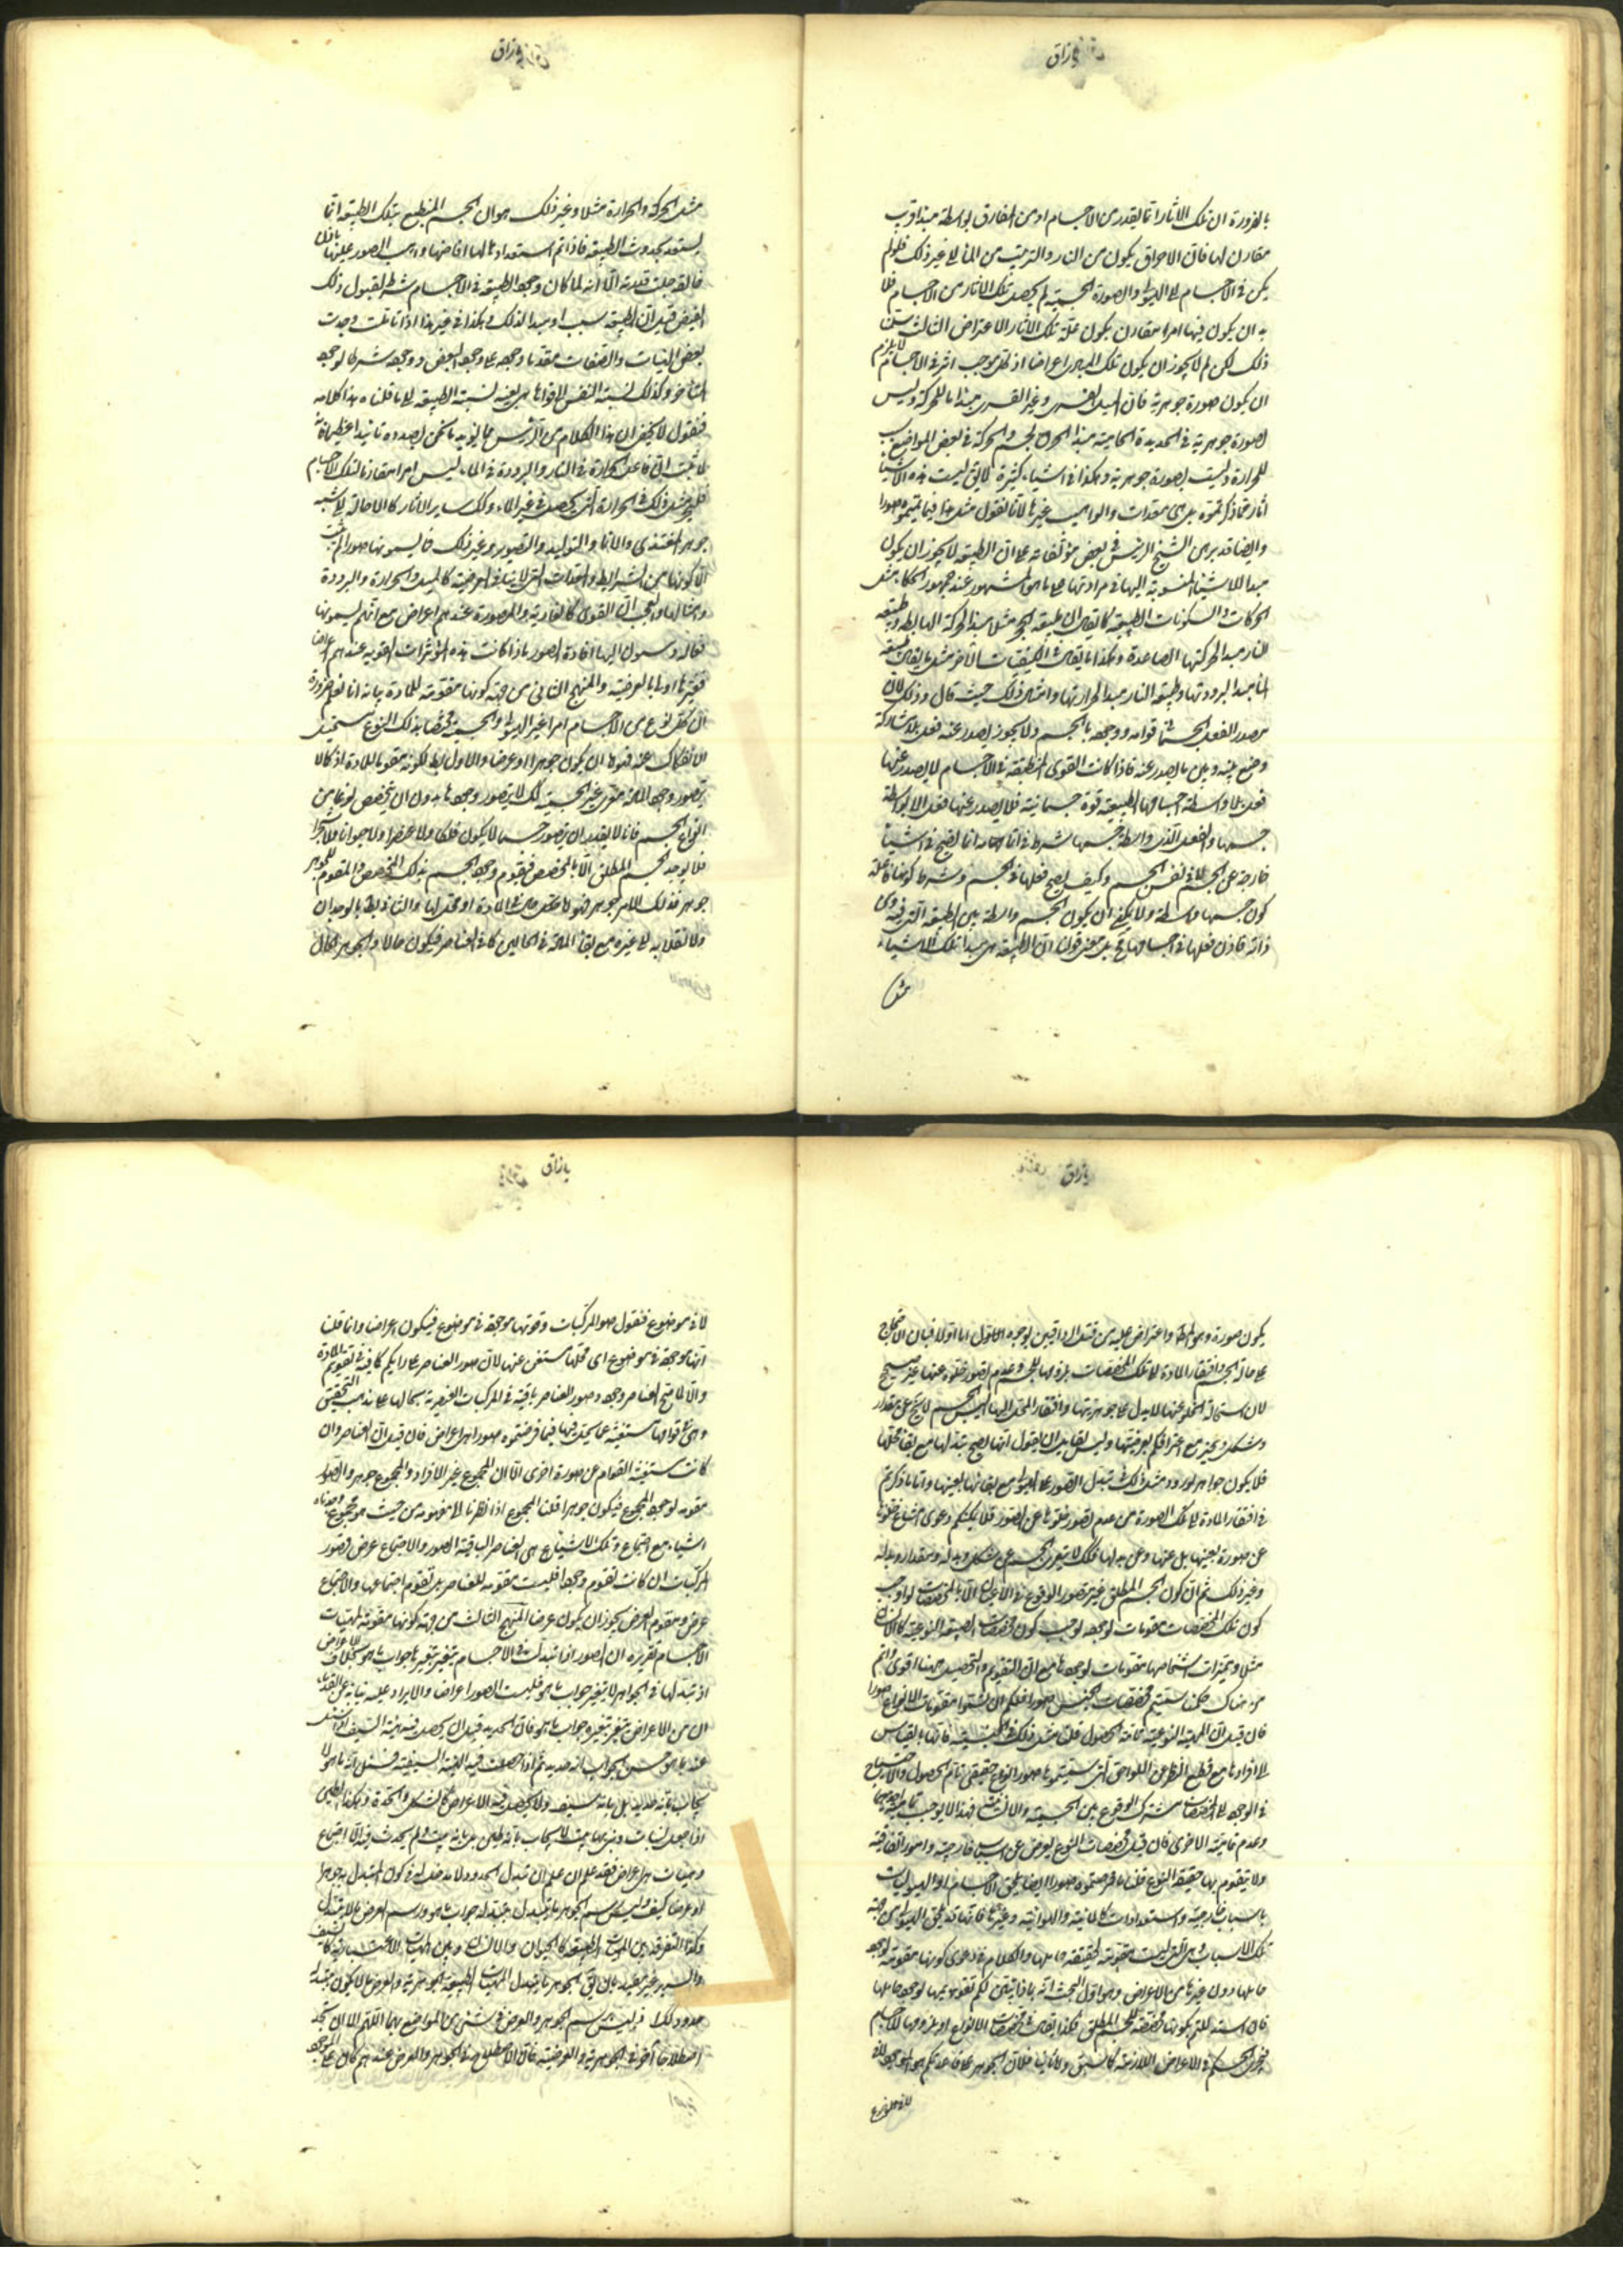 يا رزاق
بالضرورة ان تلك الاثار انما يقدر من الاجسام او من المفارق بواسطة مبدا قريب
مقارن لها فان الاحراق يكون من النار والترتيب من الماء الى غير ذلك فلو لم
يكن في الاجسام الا الهيولى والصورة الجسمية لم يحصل تلك الاثار من الاجسام فلا
بد ان يكون فيها امرا مقارن يكون علة تلك الاثار الاعتراض الثالث
ذلك لكن لم لا يجوز ان يكون تلك المبادى اعراضا اذ كل موجب اثر في الاجسام لا يلزم
ان يكون صورة جوهرية فان الميل القسرى وغير القسرى مبدا ما للحركة وليس
بصورة جوهرية في الحديدة الحامية مبدا الحرق لجسم والحركة في بعض المواضع
للحرارة وليست بصورة جوهرية وهكذا في اشياء كثيرة لا يق ليست هذه الاشياء
اثار بل هى معدات والواهب غيرها لانا نقول مثل هذا فيما سميتموه صورا
وايضا قد برهن الشيخ الرئيس في بعض مؤلفاته على ان الطبيعة لا يجوز ان يكون
مبدا للاشياء المنسوبة اليها في موادتها على ما هو المشهور عند جمهور الحكماء مثل
الحركات والسكونات الطبيعية كما يقال ان طبيعة الحجر مثلا مبدا لحركة الهابطة وطبيعة
النار مبدا لحركتها الصاعدة وهكذا ما يقال في الكيفيات الاخر مثل ما يقال طبيعة
الماء مبدا لبرودتها وطبيعة النار مبدا لحرارتها وامثال ذلك حيث قال وذلك لان
مصدر الفعل الجسمانى قوامه ووجوده بالجسم ولا يجوز يصدر عنه فعل بلا مشاركة
وضع بينه وبين ما يصدر عنه فاذا كانت القوى المنطبعة في الاجسام لا يصدر عنها
فعل بلا واسطة اجسامها والطبيعة قوة جسمانية فلا يصدر عنها فعل الا بواسطة
جسمها والفعل الذى واسطة جسمها شرط في اتمامه انما يصح في اشياء
خارجة عن الجسم لا في نفس الجسم وكيف يصح فعلها في الجسم وشرط كونها فاعلة
كون جسمها واسطة ولا يمكن ان يكون الجسم واسطة بين الطبيعة التى فيه وبين
ذاته فاذن فعلها في اجسامها مح بل معنى قولنا ان الطبيعة هى مبدا تلك الاشياء
مثل
يا رزاق
مثل الحركة والحرارة مثلا وغير ذلك هو ان الجسم المنطبع بتلك الطبيعة انما
يستعد بحدوث الطبيعة فاذا تم استعداده لها افاضها واهب الصور عليها باذن
خالقه جلت قدرته الا انه لما كان وجود الطبيعة في الاجسام شرطا لقبول ذلك
الفيض قيل ان الطبيعة سبب او مبدا لذلك وهكذا في غير هذا اذا تاملت وجدت
بعض الهيئات والصفات متقدما وجوده على وجود البعض ووجوده شرطا لوجود
المتاخر وكذلك نسبة النفس الى قواها هى بعينها نسبة الطبيعة الى ما قلناه هذا كلامه
فنقول لا يخفى ان هذا الكلام من الرئيس مما يؤيد ما نحن بصدده تاييدا عظيما فانه
لما ثبت ان فاعل الحرارة في النار والبرودة في الماء ليس امرا مقارنا لتلك الاجسام
فليجز مثل ذلك في الحرارة التى يحصل في غير الماء وكك ساير الاثار كالاحالة الى شبه
جوهر المغتذى والانماء والتوليد والتصوير وغير ذلك فما يسمونها صورا لم يثبت
الا كونها من الشرايط والمعدات التى لا ينافى العرضية كالميل والحرارة والبرودة
وامثالها والعجب ان القوى كالغاذية والمصورة عندهم اعراض مع انهم يسمونها
فعالة وينسبون اليها افادة الصور فاذا كانت هذه المؤثرات القوية عندهم اعراضا
فغيرها اولى بالعرضية والمنهج الثانى من جهة كونها مقومة للمادة بيانه انا نعلم ضرورة
ان في كل نوع من الاجسام امرا غير الهيولى والجسمية مختصا بذلك النوع يستحيل
الانفكاك عنه فهو اما ان يكون جوهرا او عرضا والاول بط لكونه مقوما للمادة اذ كما لا
يتصور وجود المادة متعرى عن الجسمية كك لا يتصور وجودها بدون ان يتخصص نوعا من
انواع الجسم فانا لا نقدر ان نتصور جسما لا يكون فلكا ولا عنصرا ولا حيوانا ولا شجرا
فلا يوجد الجسم المطلق الا بالمخصص فيقوم وجود الجسم بذلك المخصص والمقوم للجوهر
جوهر فذلك الامر جوهر فهو لا يخلو من المادة او محتاج لها والثانى بط بالوجدان
ولانقلابه الى غيره مع بقاء المادة في الحالين كما في العناصر فيكون حالا والجوهر الحال
يا رزاق
يكون صورة وهو المط واعترض عليه من قبل الرواقيين بوجوه الاول اما اولا فبان الاحتجاج
على حالة الجسم وافتقار المادة الى تلك المخصصات بلزومها للجسم وعدم تصور خلوه عنها غير صحيح
لان استحالة الخلو عنها لا يدل على جوهريتها وافتقار المحل اليها اليس الجسم لا يخ عن مقدار
وشكل وتحيز مع اعترافكم بعرضيتها وليس لقايل ان يقول انها يصح تبدلها مع بقاء محلها
فلا يكون جواهر لورود مثل ذلك في تبدل الصور على الهيولى مع بقائها بعينها واما ما ذكرتم
في افتقار المادة الى تلك الصورة من عدم تصور خلوها عن الصور فلا يمكنكم دعوى امتناع خلوها
عن صورة بعينها بل عنها وعن بدلها فكك لا يتعرى الجسم عن شكل وبدله ومقدار وبدله
وغير ذلك ثم ان كون الجسم المطلق غير متصور الوقوع في الاعيان الا بالمخصصات لو اوجب
كون تلك المخصصات مقومات لوجوده لوجب كون مخصصات الطبيعة النوعية كالانسان
مثلا ومميزات اشخاصها مقومات لوجودها مع ان التقويم والتحصيل ههنا اقوى وانتم
فكما سميتم مخصصات الجنس صورا فلكم ان تسموا مقومات الانواع صورا
فان قيل ان الماهية النوعية تامة الحصول قلنا مثل ذلك في الجسمية فانها بالقياس
الى افرادها مع قطع النظر عن اللواحق التى سميتموها صورا نوع حقيقى تام الحصول والاحتياج
في الوجود الى المخصصات مشترك الوقوع بين الجسمية والانسانية فهذا لا يوجب تمامية احديهما
وعدم تمامية الاخرى فان قيل مخصصات النوع يعرض عن اسباب خارجية وامور اتفاقية
ولا يتقوم بها حقيقة النوع قلنا ما فرضتموه صورا ايضا يلحق الاجسام او الهيوليات
باسباب خارجية واستعدادات كالمائية والهوائية وغيرها فانها قد يلحق الهيولى من جهة
تلك الاسباب هى التى ليست مقومة لحقيقة حاملها والكلام في دعوى كونها مقومة لوجود
حاملها دون غيرها من الاعراض وهو اول البحث انه بماذا يتبين لكم تقويمها لوجود حاملها
فان استدللتم بكونها مخصصة للجسم المطلق فكذا يقال في مخصصات الانواع او بلزومها للاجسام
فيجرى الحكم في الاعراض اللازمة كما سبق ولا ثانيا فلان الجوهر على قاعدتكم هو الموجود لا في
لا في موضوع
يا رزاق
لا في موضوع فنقول صور المركبات وقوتها موجودة في موضوع فيكون اعراضا وانما قلنا
انها موجودة في موضوع اى محلها مستغن عنها لان صور العناصر على رايكم كافية في تقويم المادة
والا لما صح العناصر وجود وصور العناصر باقية في المركبات العنصرية بحالها على مذهب التحقيق
وهى في قوامها مستغنية عما يحل فيها فيما فرضتموه صورا هى اعراض فان قيل ان العناصر وان
كانت مستغنية القوام عن صورة اخرى الا ان المجموع غير الافراد والمجموع جوهر والصور
مقومة لوجود المجموع فيكون جوهرا قلنا المجموع اذا نظرنا الى مفهومه من حيث هو مجموع وجدناه
اشياء مع اجتماع وتلك الاشياء هى العناصر الباقية الصور والاجتماع عرض فصور
المركبات ان كانت تقوم وجودا فليست مقومة للعناصر بل تقوم اجتماعها والاجتماع
عرض ومقوم العرض يجوز ان يكون عرضا المنهج الثالث من جهة كونها مقومة لمهيات
الاجسام تقريره ان الصور اذا تبدلت في الاجسام يتغير بتغيرها جواب ما هو بخلاف الاعراض
اذ تبدلها في الجواهر لا يتغير جواب ما هو فليست الصور اعراضا والايراد عليه نيابة عن القدماء
ان من الاعراض يتغير بتغيره جواب ما هو فان الحديد قبل ان يحصل فيه هيئة السيف اذا سئل
عنه بما هو حسن الجواب انه حديد ثم اذا حصلت فيه الهيئة السيفية فسئل انه ما هو لا
يجاب بانه حديد بل بانه سيف ولا يحصل فيه الا اعراض كالشكل والحدة وهكذا الطين
اذا جعل لبنات وبنى بها بيت لا يجاب بانه طين بل بانه بيت ولم يحدث فيه الا اجتماع
وهيئات هى اعراض فقد علم ان تبدل الحدود لا مدخل له في كون المتبدل به جوهرا
او عرضا كيف وليس رسم الجوهر ما يتبدل بتبدله جواب ما هو ورسم العرض ما لا يتبدل
وكذا التفرقة بين المهيات الطبيعية كالحيوان والانسان وبين المهيات الاعتبارية كالسيف
والسرير غير مفيد بان يق الجوهر ما يتبدل المهيات الطبيعية الجوهرية والعرض ما لا يكون بتبدله
حدود لها فليس رسم الجوهر والعرض في شئ من المواضع بهما اللهم الا ان نجد
اصطلاحا اخر في الجوهرية والعرضية فان الاصطلاح في الجوهر والعرض عندهم كان على الموجود